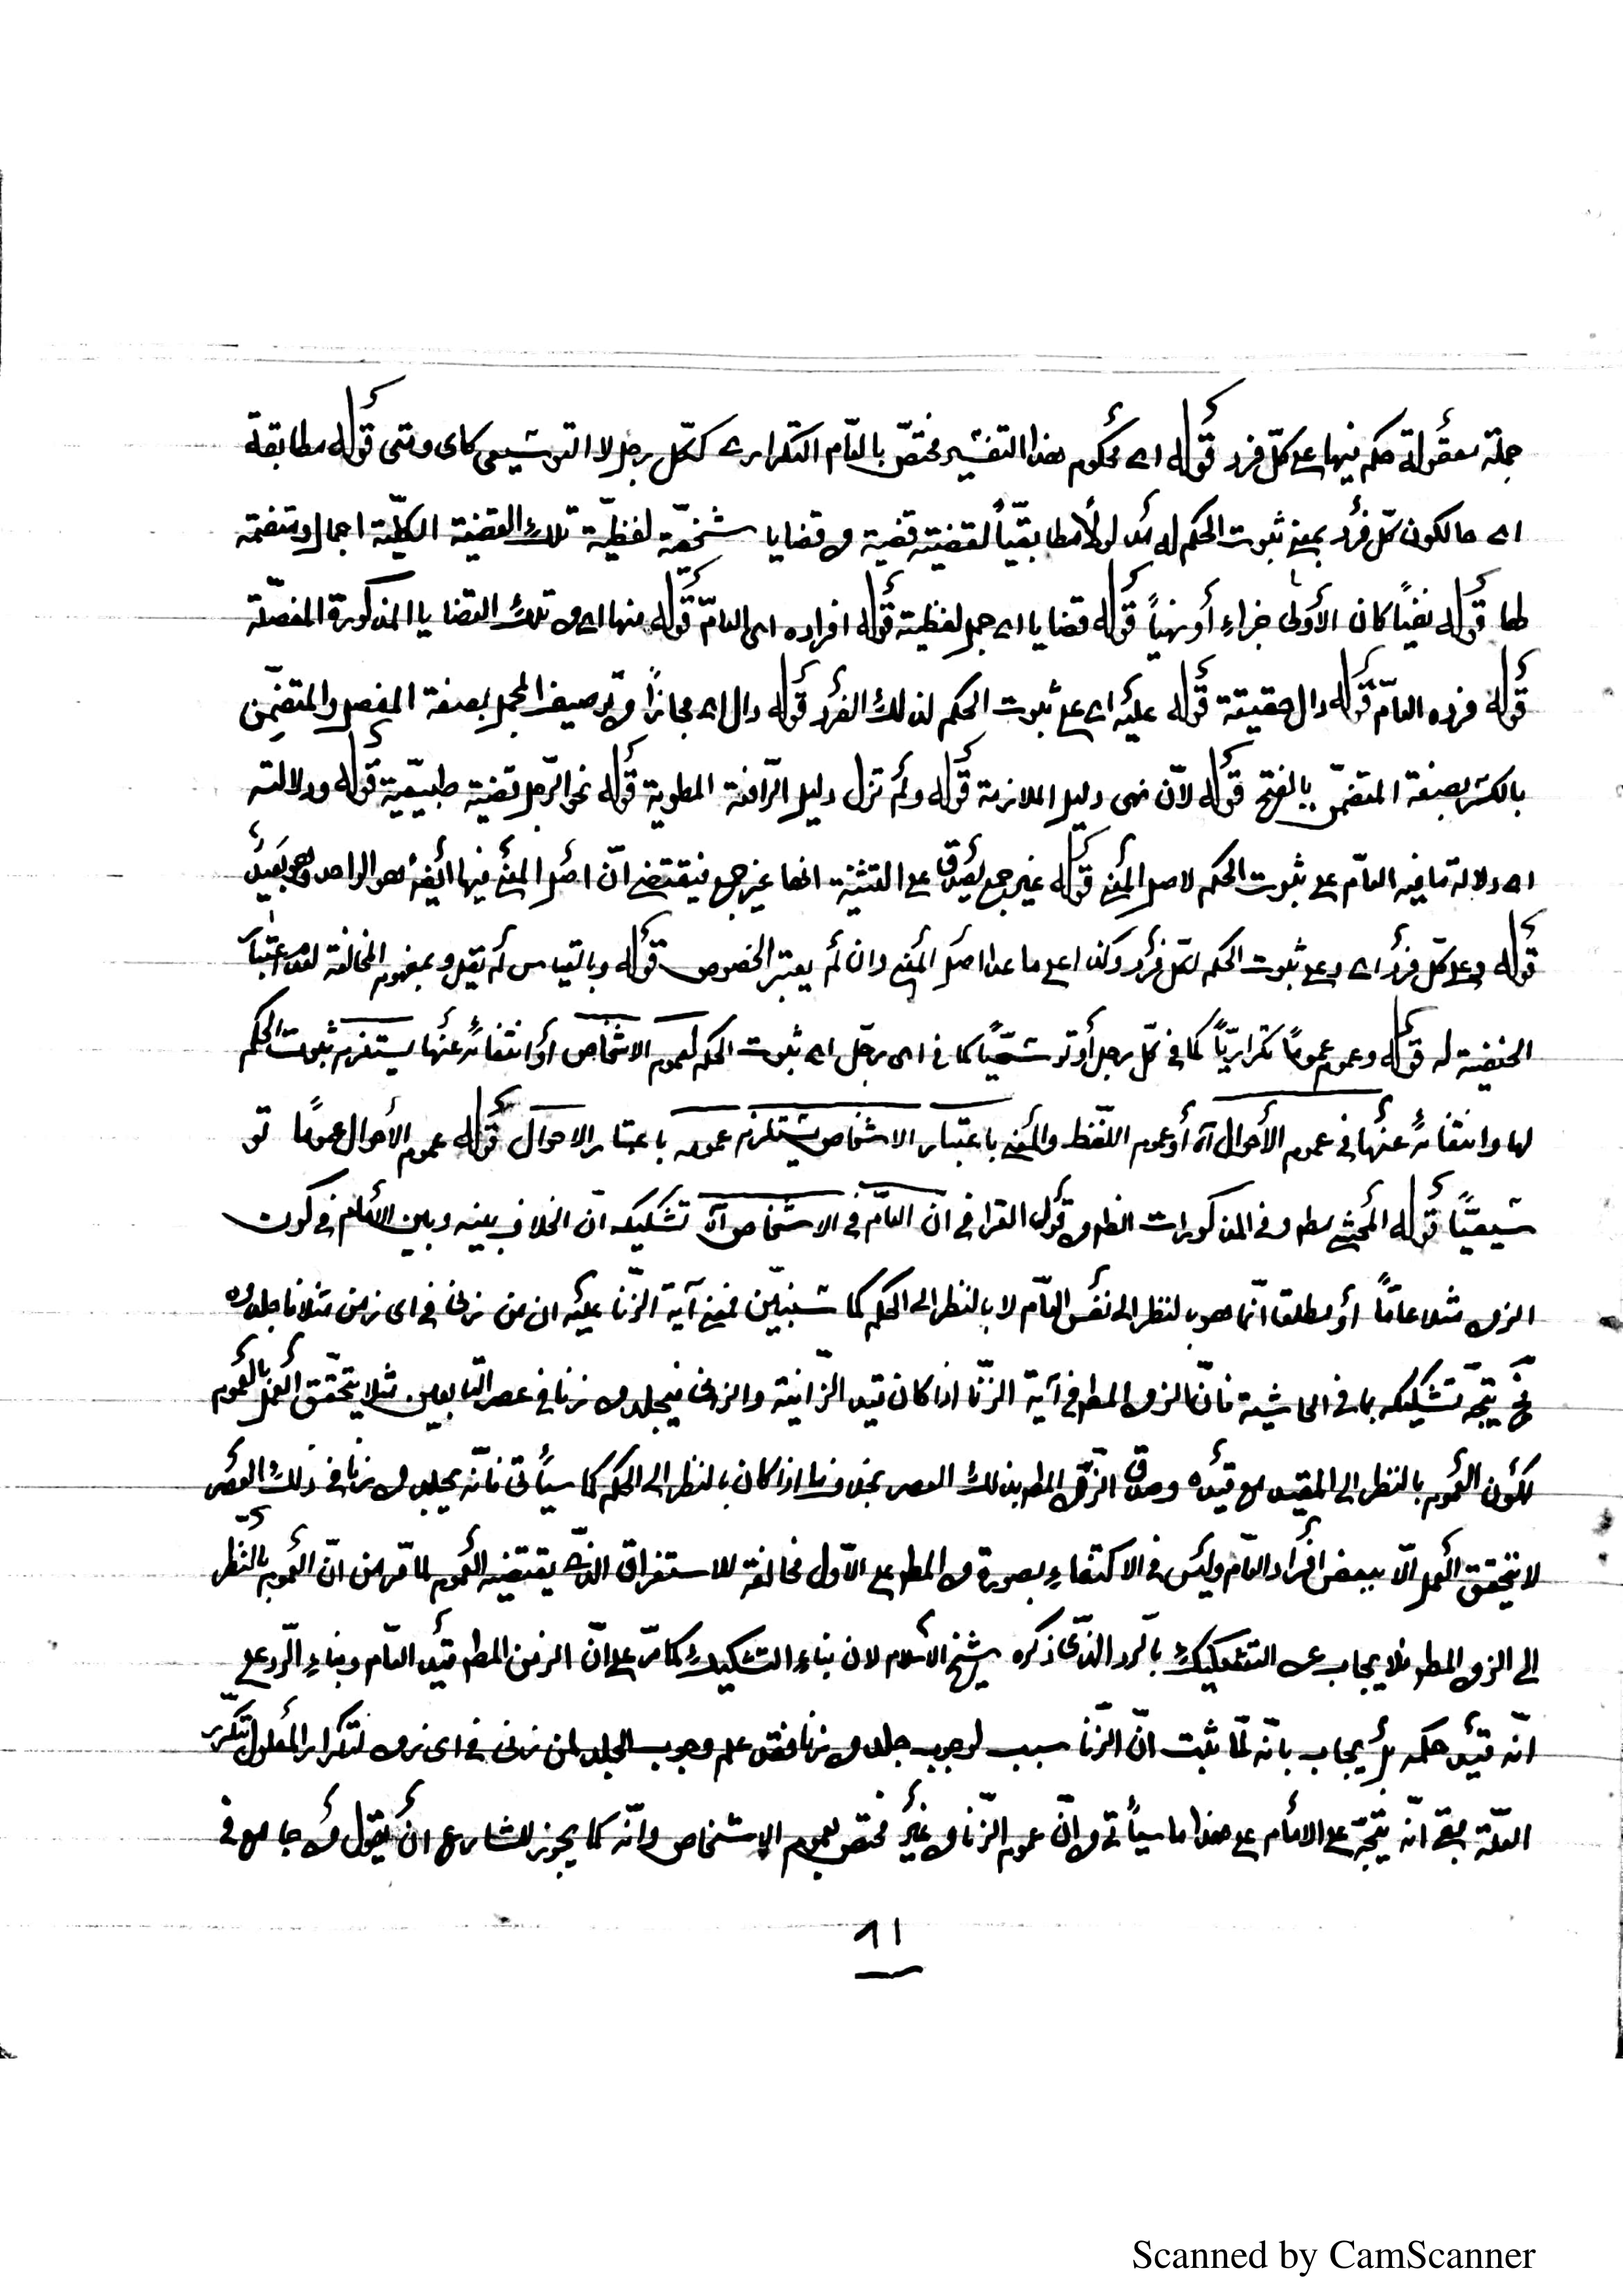 جملة معقولة حكم فيها على كلّ فرد قوله اى محكوم هذا التفسير مختصّ بالعامّ التكرارى ككلّ رجل لا التوشيعى كاى ومتى قوله مطابقة
اى حالكون كلّ فرد بمعنى ثبوت الحكم له مدلولاً مطابقيّاً لقضيّته قضية و قضايا شخصيّة لفظيّة تلك القضية الكليّة اجمال ومتضمّنة
لها قوله نفياً كان الأولى خبراءٍ أو نهياً قوله قضايا اى جمل لفظية قوله افراده اى العامّ قوله منها اى و تلك القضايا المذكورة المفصّلة
قوله فرده العامّ قوله دال حقيقة قوله عليه اى على ثبوت الحكم لذلك الفرد قوله دال اى مجازاً و توصيف المجمل بصفة المفصل والمتضمِّن
بالكسر بصفة المتضمَّن بالفتح قوله لأنّ فى دليل الملازمة قوله ولم تزل دليل الرّافعة المطوية قوله نحو الرّجل قضية طبيعّية قوله ودلالته
اى دلالة مافيه العامّ على ثبوت الحكم لاصل المعنى قوله غير جمع يصدق على التثنية انها غير جمع فيقتضى انّ اصل المعنى فيها ايضاً هو الواحد وهو بعيد
قوله وعلى كلّ فرد اى وعلى ثبوت الحكم لكلّ فرد وكذا على ماعدا اصل المعنى وان لم يعتبر الخصوص قوله وبالقياس لم يقل وبمفهوم المخالفة لعدم اعتبار
الحنفية له قوله وعموم عموماً تكراريّاً كما فى كلّ رجل أو توشيعيّاً كما فى اى رجل اى ثبوت الحكم لعموم الاشخاص أو انتفائهُ عنها يستلزم ثبوت الحكم
لها وانتفائهُ عنها فى عموم الأحوال آه أو عموم اللّفظ والمعنى باعتبار الاشخاص يستلزم عمومه باعتبار الاحوال قوله عموم الأحوال عموماً تو
شيعيّاً قوله المحشى مطلق وفى المذكورات الظرف قول القرافى ان العامّ فى الاشخاص آه تشكيكه انّ الخلاف بينه وبين الأمام فى كون
الزمن مثلا عامّاً أو مطلقا انّما هو بالنظر الى نفس العامّ لا بالنظر الى الحكم كما سنبيّن فمعنى آية الزّنا عليه ان من زنى فى اى زمن مثلا فاجلدوه
فح يتّجه تشكيكه بما فى الحاشية فانّ الزمن المطلق فى آية الزّنا اذا كان قيد الزّانية والزانى فيجلد من زنا فى عصر التّابعين مثلا يتحّقق العمل بالعموم
لكون العموم بالنظر الى المقيد مع قيده وصدق الزّمن المطلق بذلك العصر بخلاف ما اذا كان بالنظر الى الحكم كما سيأتى فانّه يجلد من زنا فى ذلك العصر
لا يتحقق العمل الّا ببعض افراد العامّ وليس فى الاكتفاءِ بصورة من المطلق على الأوّل مخالفة للاستغراق الذى يقتضيه العموم لما مّر من انّ العموم بالنّظر
الى الزمن المطلق فلا يجاب عن التشكيك بالرد الذّى ذكره شيخ الأسلام لان بناءِ التشكيك كما مرّ على انّ الزمن المطلق قيد العام وبناءِ الرّد على
انّه قيد حكمه بل يجاب بانّه لمّا ثبت انّ الزّنا سبب لوجوب جلد من زنا فقد علم وجوب الجلد لمن زنى فى اى زمن لتكرار المعلول بتكرّر
العلّة بقى انّه يتجّه على الامام على هذا ما سيأتى من انّ عموم الزّمان غير مختص بعموم الاشخاص وانّه كما يجوز للشارع أن يقول من جامع فى
٦١
Scanned by CamScanner